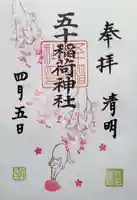 奉拝
清明
五十稲荷神社
四月五日